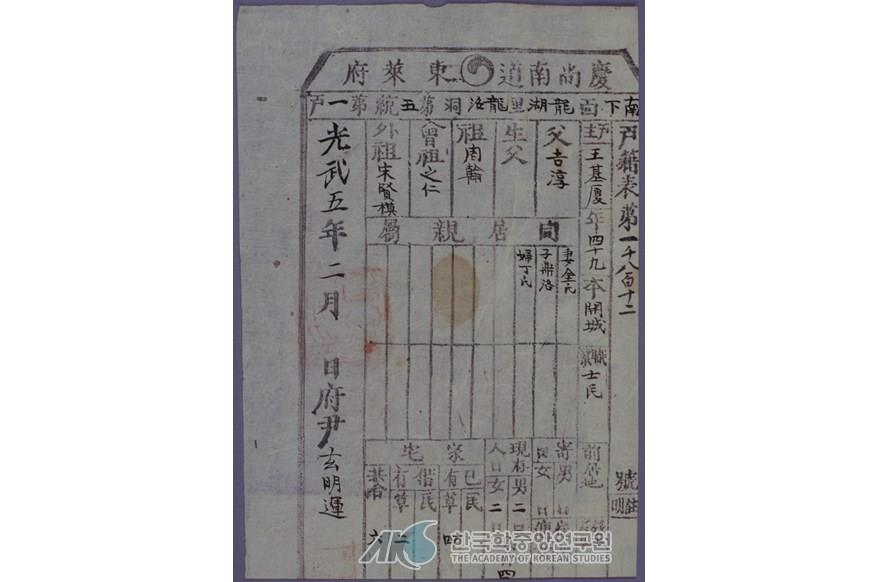 慶尚南道 東萊府
南下面龍湖里龍洛洞第五統第一戶
戶籍表第一千八百十二號
戶主
王基廈
年四十九
本開城
職業
士民
前居地
父吉淳
生父
祖周翰
曾祖之仁
外祖宋賢模
同居親屬
妻金氏
子鼎洛
婦丁氏
寄口
男
女
現存人口
男二口
女二口
家宅
己有
民
草四
借有
民
草二
共合
六
光武五年二月 日府尹玄明運
AKS 한국학중앙연구원
THE ACADEMY OF KOREAN STUDIES